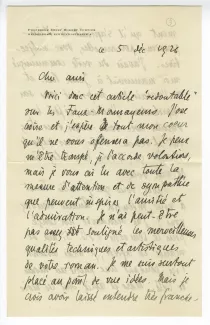 ce 5 Déc 1926
Cher ami
Voici donc cet article "redoutable"
sur les Faux-Monnayeurs. J'en
et j'espère de tout mon cœur
qu'il ne vous offensera pas. Je peux
m'être trompé, je l'accorde volontiers,
mais je vous ai lu avec toute la
mesure d'attention et de sympathie
que peuvent inspirer l'amitié et
l'admiration. Je n'ai peut-être
pas assez souligné les merveilleuses
qualités techniques et artistiques
de votre roman. Je me suis surtout
placé au point de vue idées. Mais je
crois avoir laissé entendre très